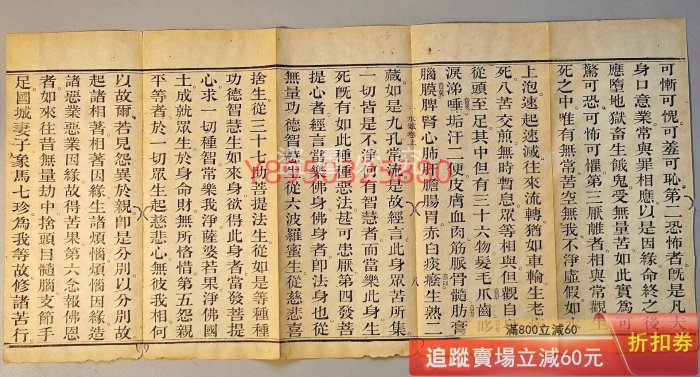 可慚可愧可羞可恥第二恐怖者旣是凡夫
身口意業常與罪相應以是因緣命終之後
應墮地獄畜生餓鬼受無量苦如此實為可
驚可恐可怖可懼第三厭離者相與常觀生
死之中唯有無常苦空無我不淨虛假如
上泡速起速滅往來流轉猶如車輪生老
死八苦交煎無時暫息眾等相與但觀自
從頭至足其中但有三十六物髮毛爪齒眵
淚涕唾垢汗二便皮膚血肉筋脈骨髓肪膏
腦膜脾腎心肺肝膽腸胃赤白痰癊生熟二
水懺卷 八
藏如是九孔常流是故經言此身眾苦所集
一切皆是不淨何有智慧者而當樂此身生
死旣有如此種種惡法甚可患厭第四發菩
提心者經言當樂佛身佛身者即法身也從
無量功德智慧生從六波羅蜜生從慈悲喜
捨生從三十七助菩提法生從如是等種種
功德智慧生如來身欲得此身者當發菩提
心求一切種智常樂我淨薩婆若果淨佛國
土成就眾生於身命財無所恡惜第五怨親
平等者於一切眾生起慈悲心無彼我相何
以故爾若見怨異於親即是分別以分別故
起諸相著相著因緣生諸煩惱煩惱因緣造
諸惡業惡業因緣故得苦果第六念報佛恩
者如來往昔無量劫中捨頭目髓腦支節手
足國城妻子象馬七珍為我等故修諸苦行
滿800立減60
追蹤賣場立減60元
折扣券